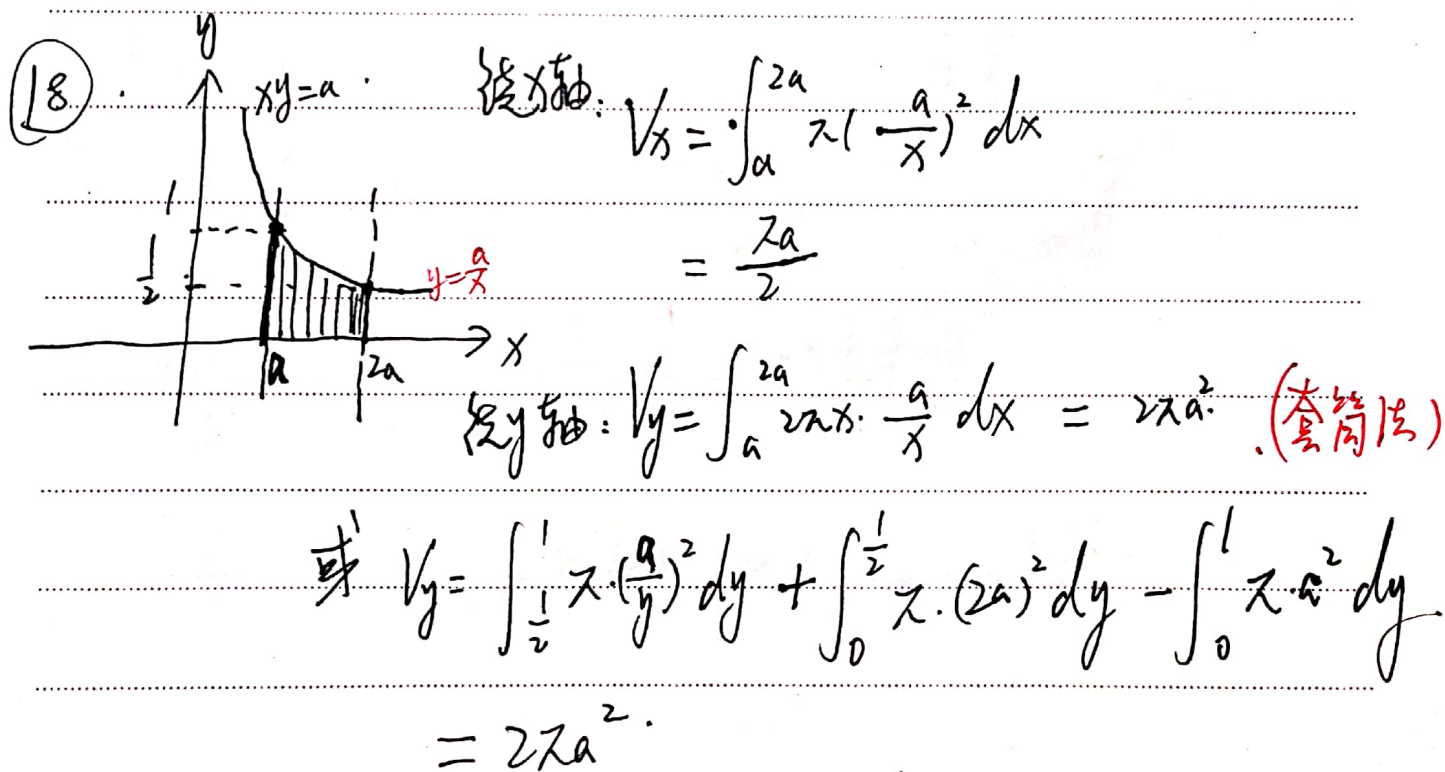 ⑱
y
xy=a
1
1/2
y=a/x
x
a
2a
绕x轴: Vx = ∫_a^{2a} π(a/x)² dx
= πa/2
绕y轴: Vy = ∫_a^{2a} 2πx·a/x dx = 2πa². (套筒法)
或 Vy = ∫_{1/2}^1 π·(a/y)² dy + ∫_0^{1/2} π·(2a)² dy − ∫_0^1 π·a² dy.
= 2πa².